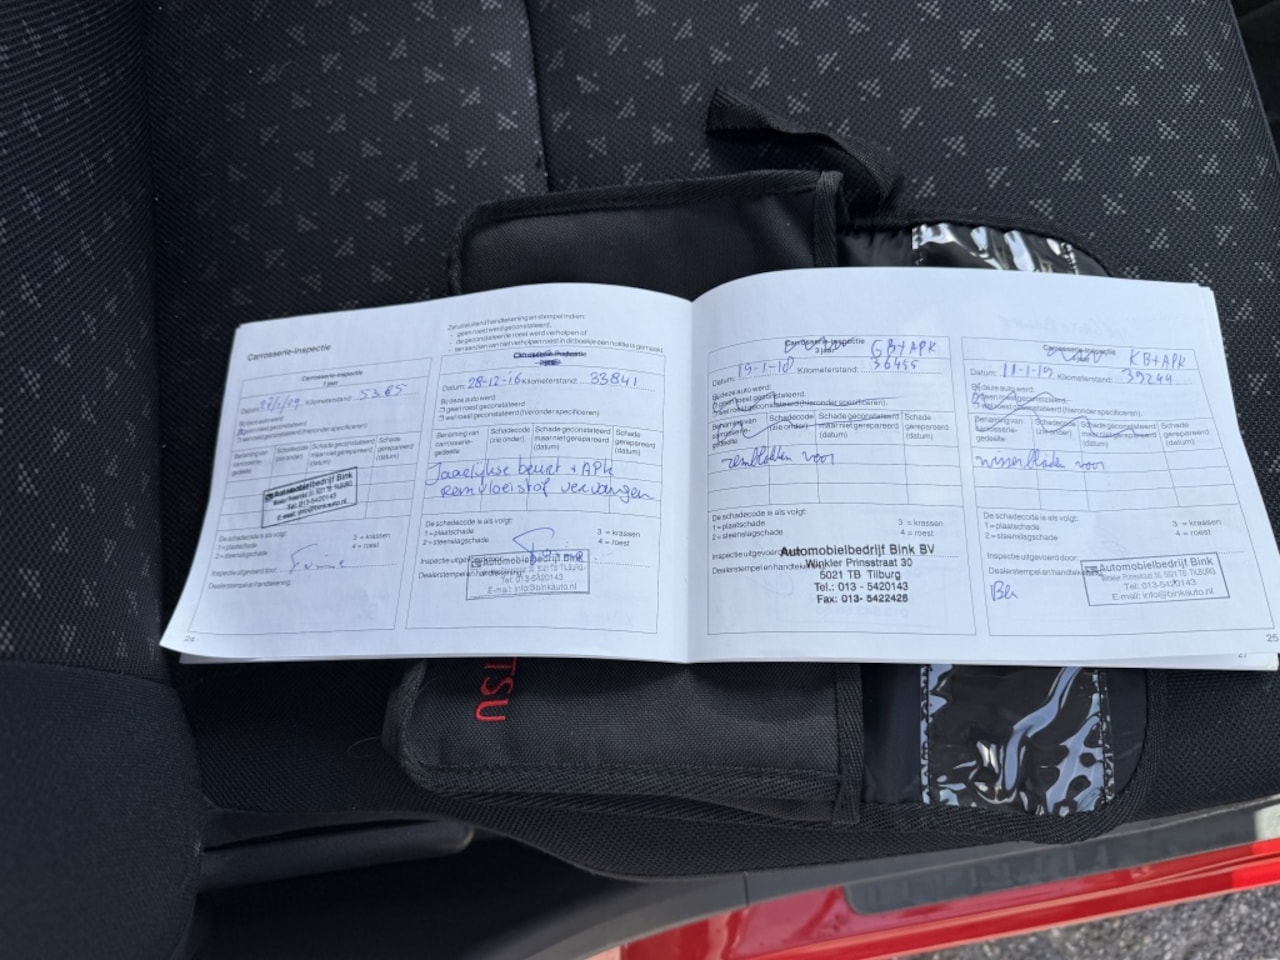 Carrosserie-Inspectie
Carrosserie-Inspectie
1 jaar
Datum: Kilometerstand: 5385
Bij deze auto werd:
geen roest geconstateerd
wel roest geconstateerd (hieronder specificeren)
Benaming van carrosserie-gedeelte
Schadecode (zie onder)
Schade geconstateerd maar niet gerepareerd (datum)
Schade gerepareerd (datum)
Automobielbedrijf Bink
Tel: 013-5420143
E-mail: info@binkauto.nl
De schadecode is als volgt:
1 = plaatschade 3 = krassen
2 = steenslagschade 4 = roest
Inspectie uitgevoerd door:
Dealerstempel en handtekening:
24
Zijn uitsluitend handtekening en stempel indien:
- geen roest werd geconstateerd,
- de geconstateerde roest werd verholpen of
- ten aanzien van niet verholpen roest in dit boekje een notitie is gemaakt.
Carrosserie-Inspectie
Datum: 28-12-16 Kilometerstand: 33841
Bij deze auto werd:
geen roest geconstateerd
wel roest geconstateerd (hieronder specificeren)
Benaming van carrosserie-gedeelte
Schadecode (zie onder)
Schade geconstateerd maar niet gerepareerd (datum)
Schade gerepareerd (datum)
Jaarlijkse beurt + APK
Remvloeistof vervangen
De schadecode is als volgt:
1 = plaatschade 3 = krassen
2 = steenslagschade 4 = roest
Inspectie uitgevoerd
Dealerstempel en handtekening:
Automobielbedrijf Bink
Tel: 013-5420143
E-mail: info@binkauto.nl
Carrosserie-Inspectie GB+APK
3 jaar
Datum: 19-1-18 Kilometerstand: 36455
Bij deze auto werd:
geen roest geconstateerd
wel roest geconstateerd (hieronder specificeren).
Benaming van carrosserie-gedeelte
Schadecode (zie onder)
Schade geconstateerd maar niet gerepareerd (datum)
Schade gerepareerd (datum)
remblokken voor
De schadecode is als volgt:
1 = plaatschade 3 = krassen
2 = steenslagschade 4 = roest
Inspectie uitgevoerd
Dealerstempel en handtekening
Automobielbedrijf Bink BV
Winkler Prinsstraat 30
5021 TB Tilburg
Tel.: 013 - 5420143
Fax: 013- 5422426
Carrosserie-Inspectie KB+APK
Datum: 11-1-19 Kilometerstand: 39244
Bij deze auto werd:
geen roest geconstateerd
wel roest geconstateerd (hieronder specificeren).
Benaming van carrosserie-gedeelte
Schadecode (zie onder)
Schade geconstateerd maar niet gerepareerd (datum)
Schade gerepareerd (datum)
wisserbladen voor
De schadecode is als volgt:
1 = plaatschade 3 = krassen
2 = steenslagschade 4 = roest
Inspectie uitgevoerd door:
Dealerstempel en handtekening
Automobielbedrijf Bink
Winkler Prinsstraat 30, 5021 TB TILBURG
Tel: 013-5420143
E-mail: info@binkauto.nl
25
27
TSU